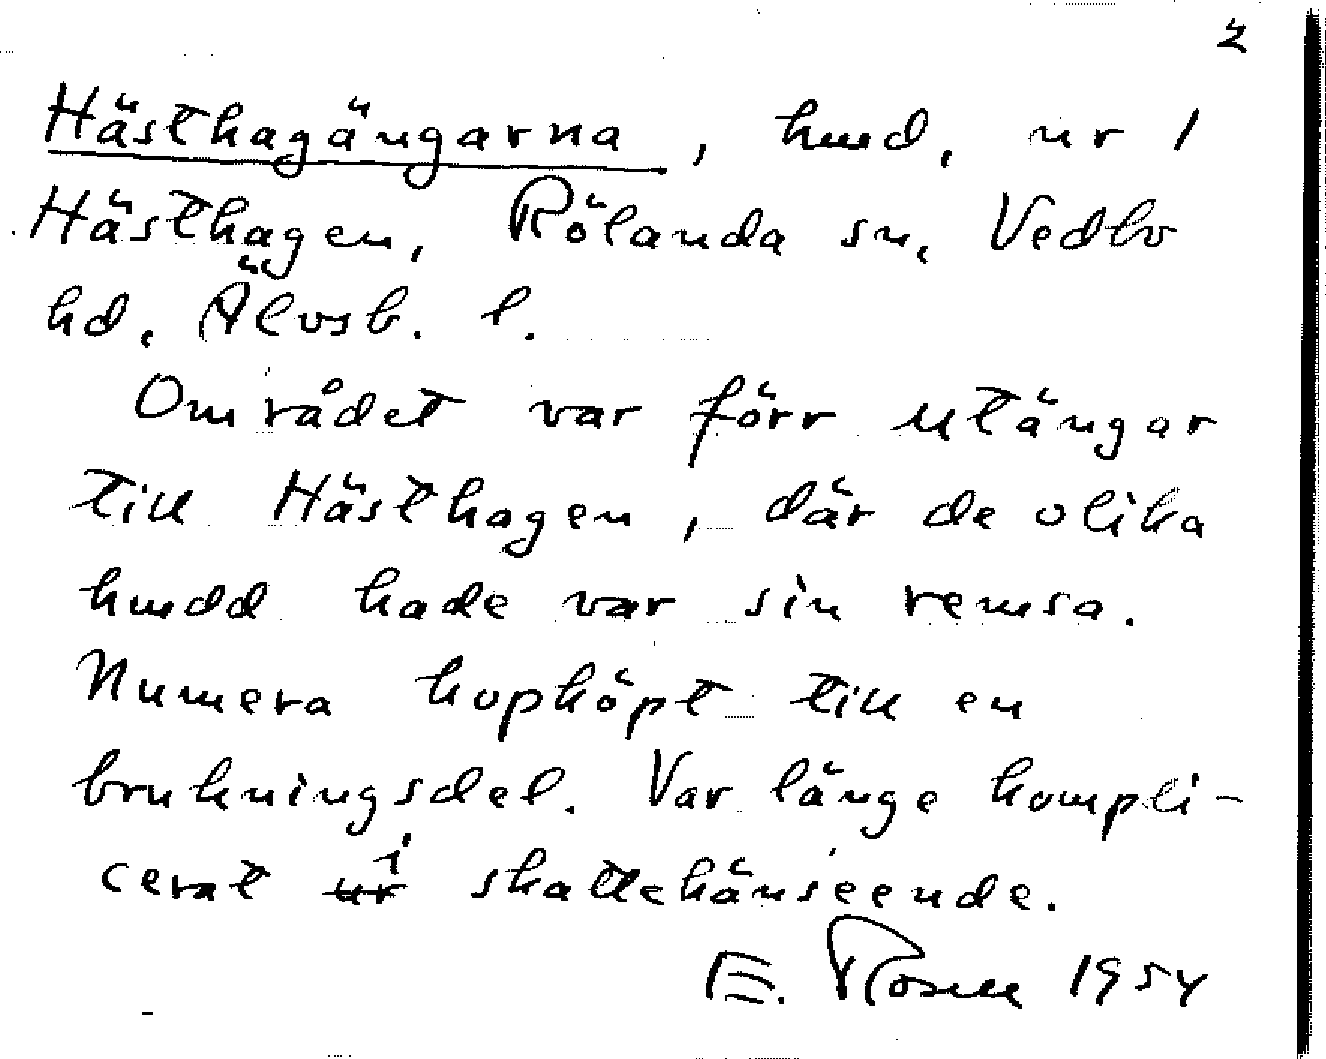 2
Hästhagängarna, hmd, nr 1
Hästhagen, Rölanda sn, Vedbo
hd, Älvsb. l.
Området var förr utängar
till Hästhagen, där de olika
hmdd hade var sin remsa.
Numera hopköpt till en
brukningsdel. Var länge kompli-
cerat ur i skattehänseende.
E. Rosell 1954